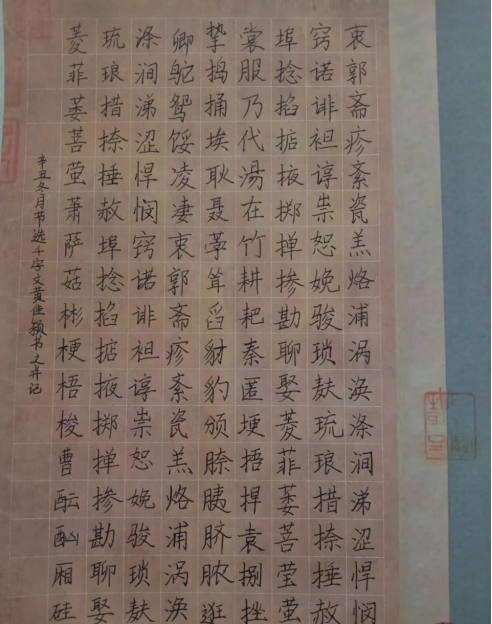 衷郭斋疹紊瓷羔烙浦涡涣涤涧涕涩悍悯
窍诺诽袒谆祟恕娩骏琐麸琉琅措捺捶赦
埠捻掐掂掖掷掸掺勘聊娶菱菲萎菩莹萤
裳服乃代汤在竹耕耙秦匿埂捂捍袁捌挫
挚捣捅埃耿聂荸耸舀豺豹颁胯胰脐脓逛
卿鸵鸳馁凌凄衷郭斋疹紊瓷羔烙浦涡涣
涤涧涕涩悍悯窍诺诽袒谆祟恕娩骏琐麸
琉琅措捺捶赦埠捻掐掂掖掷掸掺勘聊娶
菱菲萎菩萤萧萨菇彬梗梧梭曹酝酗厢硅
辛丑冬月节选千字文黄佳颖书之并记